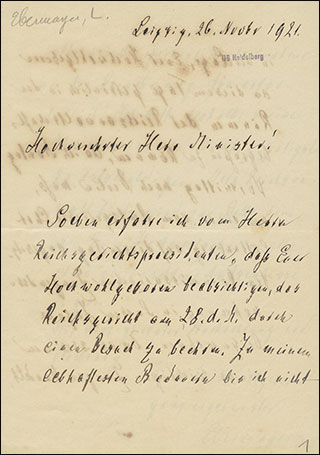 Ebermayer, L.
Leipzig, 26. Novbr 1921.
UB Heidelberg
Hochverehrter Herr Minister!
Soeben erfahre ich vom Herrn
Reichsgerichtspraesidenten, daß Euer
Hochwohlgeboren beabsichtigen, das
Reichsgericht am 28. d. M. durch
einen Besuch zu beehren. Zu meinem
lebhaftesten Bedauern bin ich nicht
1